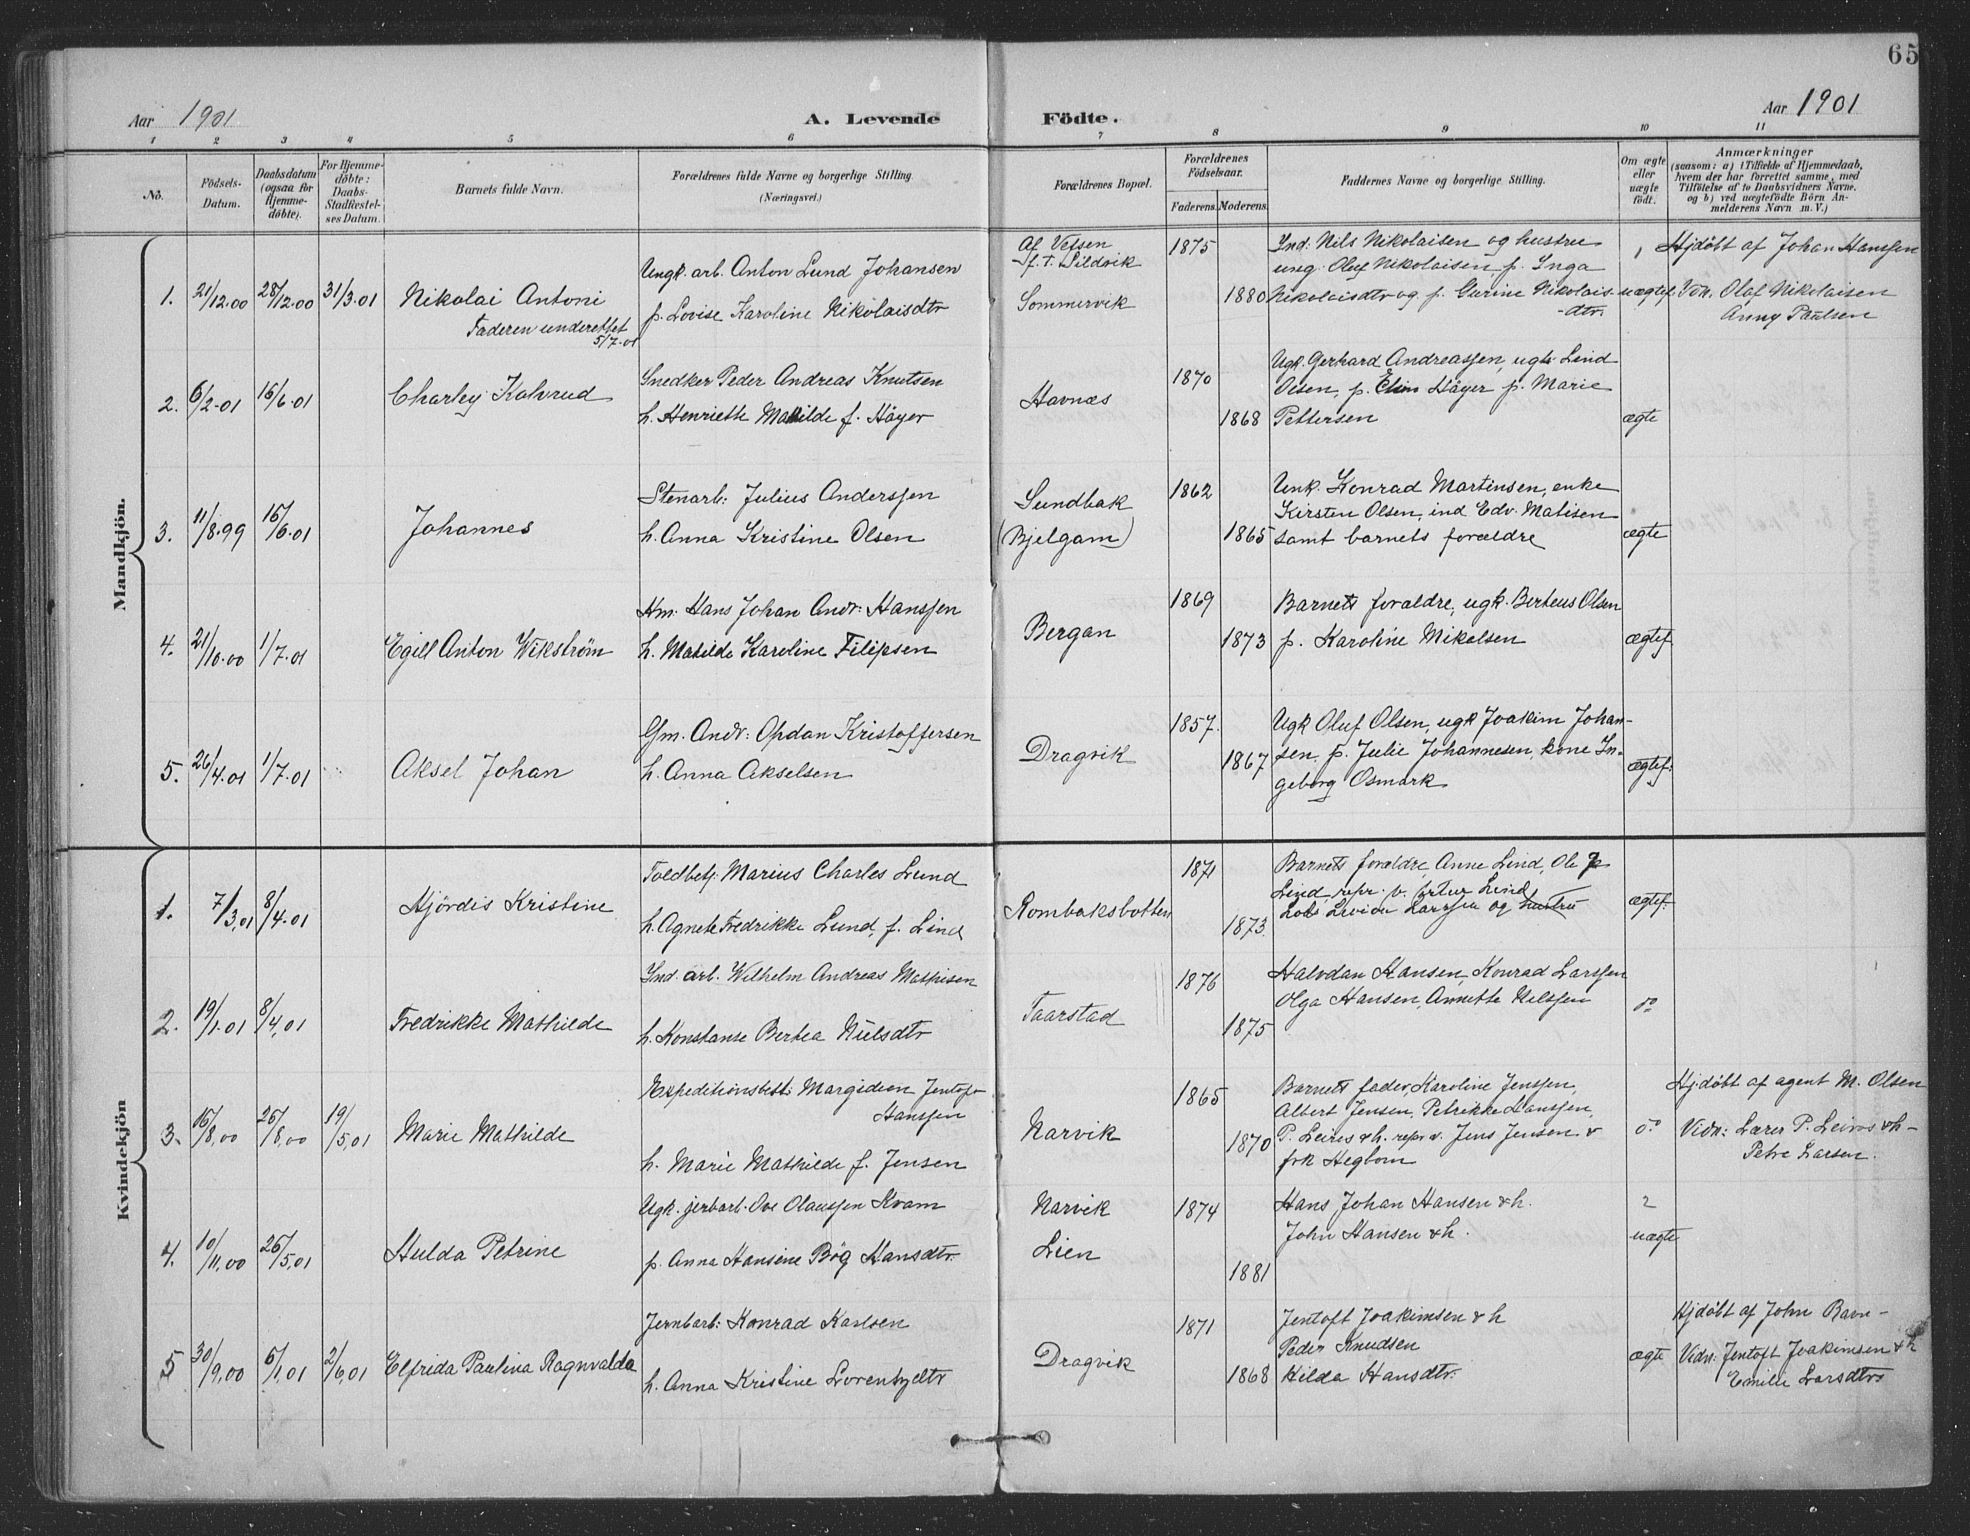 65
Aar 1901
A. Levende Födte.
Aar 1901
1 2 3 4 5 6 7 8 9 10 11
No.
Födsels-Datum.
Daabsdatum (ogsaa for Hjemme-döbte).
For Hjemme-döbte: Daabs-Stadfæstelses Datum.
Barnets fulde Navn.
Forældrenes fulde Navne og borgerlige Stilling.
(Næringsvei.)
Forældrenes Bopæl.
Forældrenes Födselsaar.
Faderens. Moderens.
Faddernes Navne og borgerlige Stilling.
Om ægte eller uægte födt.
Anmærkninger
(saasom: a) i Tilfælde af Hjemmedaab, hvem der har forrettet samme, med Tilföielse af to Daabsvidners Navne, og b) ved uægtefödte Börn Anmelderens Navn m. V.)
Mandkjön.
1. 21/12.00 28/12.00 31/3.01 Nikolai Antoni
Faderen underettet
5/7.01
Ungk. arb. Anton Lund Johansen
p. Lovise Karoline Nikolaisdtr
Af Vefsen
f. T. Sildvik
Sommervik
1875
1880
Ind: Nils Nikolaisen og hustru
ung. Oluf Nikolaisen, p. Inga
Nikolaisdtr og p. Gurine Nikolais-
dtr.
uægtef.
Hjdöbt af Johan Hanssen
Vidn. Olaf Nikolaisen
Anny Paulsen
2. 6/2.01 16/6.01 Charley Kolvrud
Snedker Peder Andreas Knutsen
h. Henriette Mathilde f. Häyer
Havnæs
1870
1868
Ugk. Gerhard Andreassen, ugk. Lind
Olsen, p. Elin Häyer p. Marie
Pettersen
ægte
3. 11/8.99 16/6.01 Johannes
Stenarb: Julius Anderssen
h. Anna Kristine Olsen
Sundbak
(Bjelgam)
1862
1865
Unk. Konrad Martinsen, enke
Kirsten Olsen, ind Edv. Matisen
samt barnets forældre
ægte
4. 21/10.00 1/7.01 Egill Anton Wikström
Hm. Hans Johan Andr. Hanssen
h. Matilde Karoline Filipsen
Bergan
1869
1873
Barnets forældre, ugk. Berteus Olsen
p. Karoline Mikalsen
ægtef.
5. 26/4.01 1/7.01 Aksel Johan
Gm. Andr: Opdan Kristoffersen
h. Anna Akselsen
Dragvik
1857.
1867
Ugk Oluf Olsen, ugk Joakim Johan-
sen, p. Julie Johannesen, kone In-
geborg Osmark
ægtef.
Kvindekjön
1. 7/3.01 8/4.01 Hjördis Kristine
Toldbetj. Marius Charles Lund
h. Agnete Fredrikke Lund, f. Lind
Rombaksbotten
1871
1873.
Barnets forældre, Anne Lind, Ole
Lind, repr. v. Artur Lind
Larssen og hustru
ægtef.
2. 19/1.01 8/4.01 Fredrikke Mathilde
Ind. arb. Wilhelm Andreas Mathisen
h. Konstanse Bertea Nielsdtr
Taarstad
1876
1875
Halvdan Hansen, Konrad Larssen
Olga Hansen, Annette Nilssen
do
3. 16/8.00 26/8.00 19/5.01 Marie Mathilde
Expeditionsbest: Margideon Jentof-
Hanssen
h. Marie Mathilde f. Jensen
Narvik
1865
1870
Barnets fader, Karoline Jenssen,
Albert Jensen, Petrikke Hanssen,
P. Leires & h. repr v. Jens Jensen &
frk Hegbom
do
Hjdöbt af agent M. Olsen
Vidn: Lærer P. Leiros & h-
Petre Larsen.
4. 10/11.00 26/5.01 Hulda Petrine
Ugk. jerbarb. Ove Olaussen Kvam
p. Anna Hansine Bög Hansdtr.
Narvik
Lien
1874
1881
Hans Johan Hansen & h.
John Hansen & h.
2
uægte
5 30/9.00 6/1.01 2/6.01 Elfrida Paulina Ragnvalda
Jernbarb: Konrad Karlsen
h. Anna Kristine Lorentzdtr
Dragvik
1871
1868
Jentoft Joakimsen & h
Peder Knudsen
Hilda Hansdtr.
ægte
Hjdöbt af John Bavn-
Vidn: Jentoft Joakimsen & h
Emilie Larsdtr